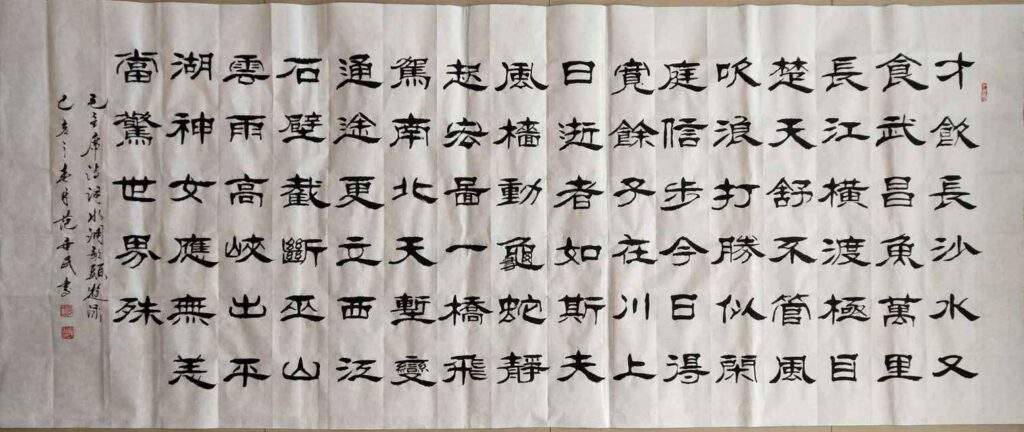 才飲長沙水又
食武昌魚萬里
長江橫渡極目
楚天舒不管風
吹浪打勝似閑
庭信步今日得
寬餘子在川上
曰逝者如斯夫
風檣動龜蛇靜
起宏啚一橋飛
駕南北天塹變
通途更立西江
石壁截斷巫山
雲雨高峽出平
湖神女應無恙
當驚世界殊
毛主席詩詞水調歌頭游泳
己亥之春月范書